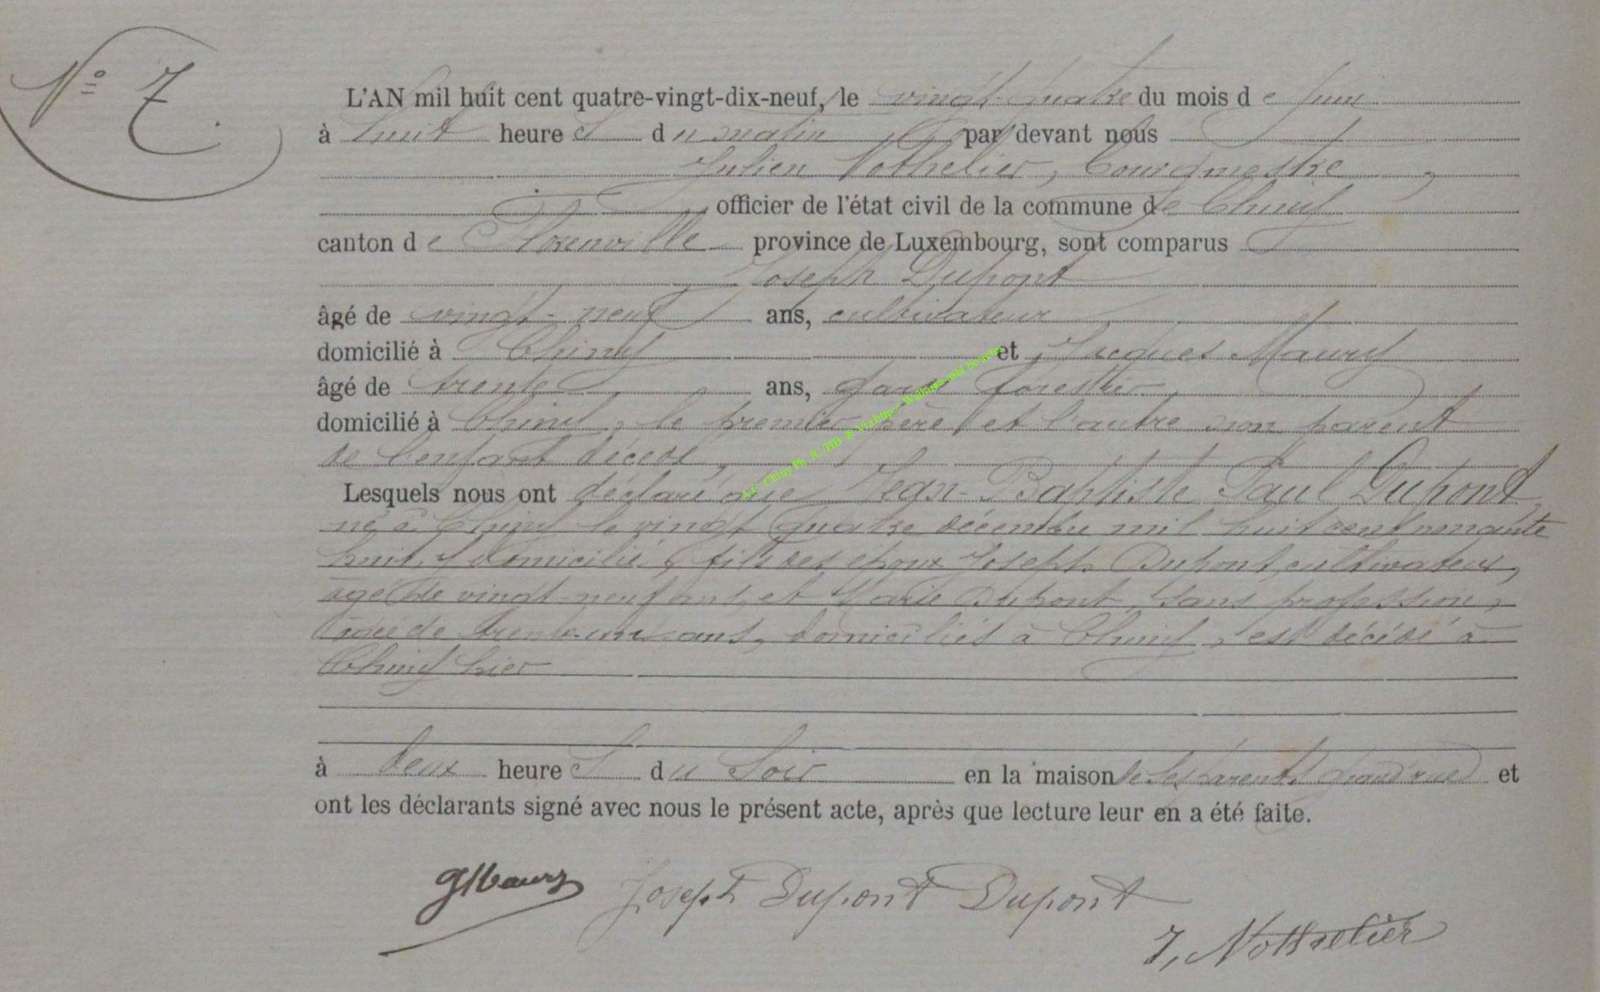 N° 7.
L'AN mil huit cent quatre-vingt-dix-neuf, le vingt-quatre du mois de juin
à huit heures du matin par devant nous
Julien Nothelier, bourgmestre,
officier de l'état civil de la commune de Chiny
canton de Florenville province de Luxembourg, sont comparus
Joseph Dupont
âgé de vingt-neuf ans, cultivateur
domicilié à Chiny et Jacques Maury
âgé de trente ans, garde forestier
domicilié à Chiny, le premier père et l'autre non parent
de l'enfant décédé,
Lesquels nous ont déclaré que Jean-Baptiste Paul Dupont
né à Chiny le vingt quatre décembre mil huit cent nonante
huit, y domicilié, fils des époux Joseph Dupont, cultivateur,
âgé de vingt-neuf ans, et Marie Dupont, sans profession,
âgée de trente-un ans, domiciliés à Chiny, est décédé à
Chiny hier
à deux heures du soir en la maison de ses parents Grand'rue et
ont les déclarants signé avec nous le présent acte, après que lecture leur en a été faite.
Maury Joseph Dupont Dupont
J, Nothelier